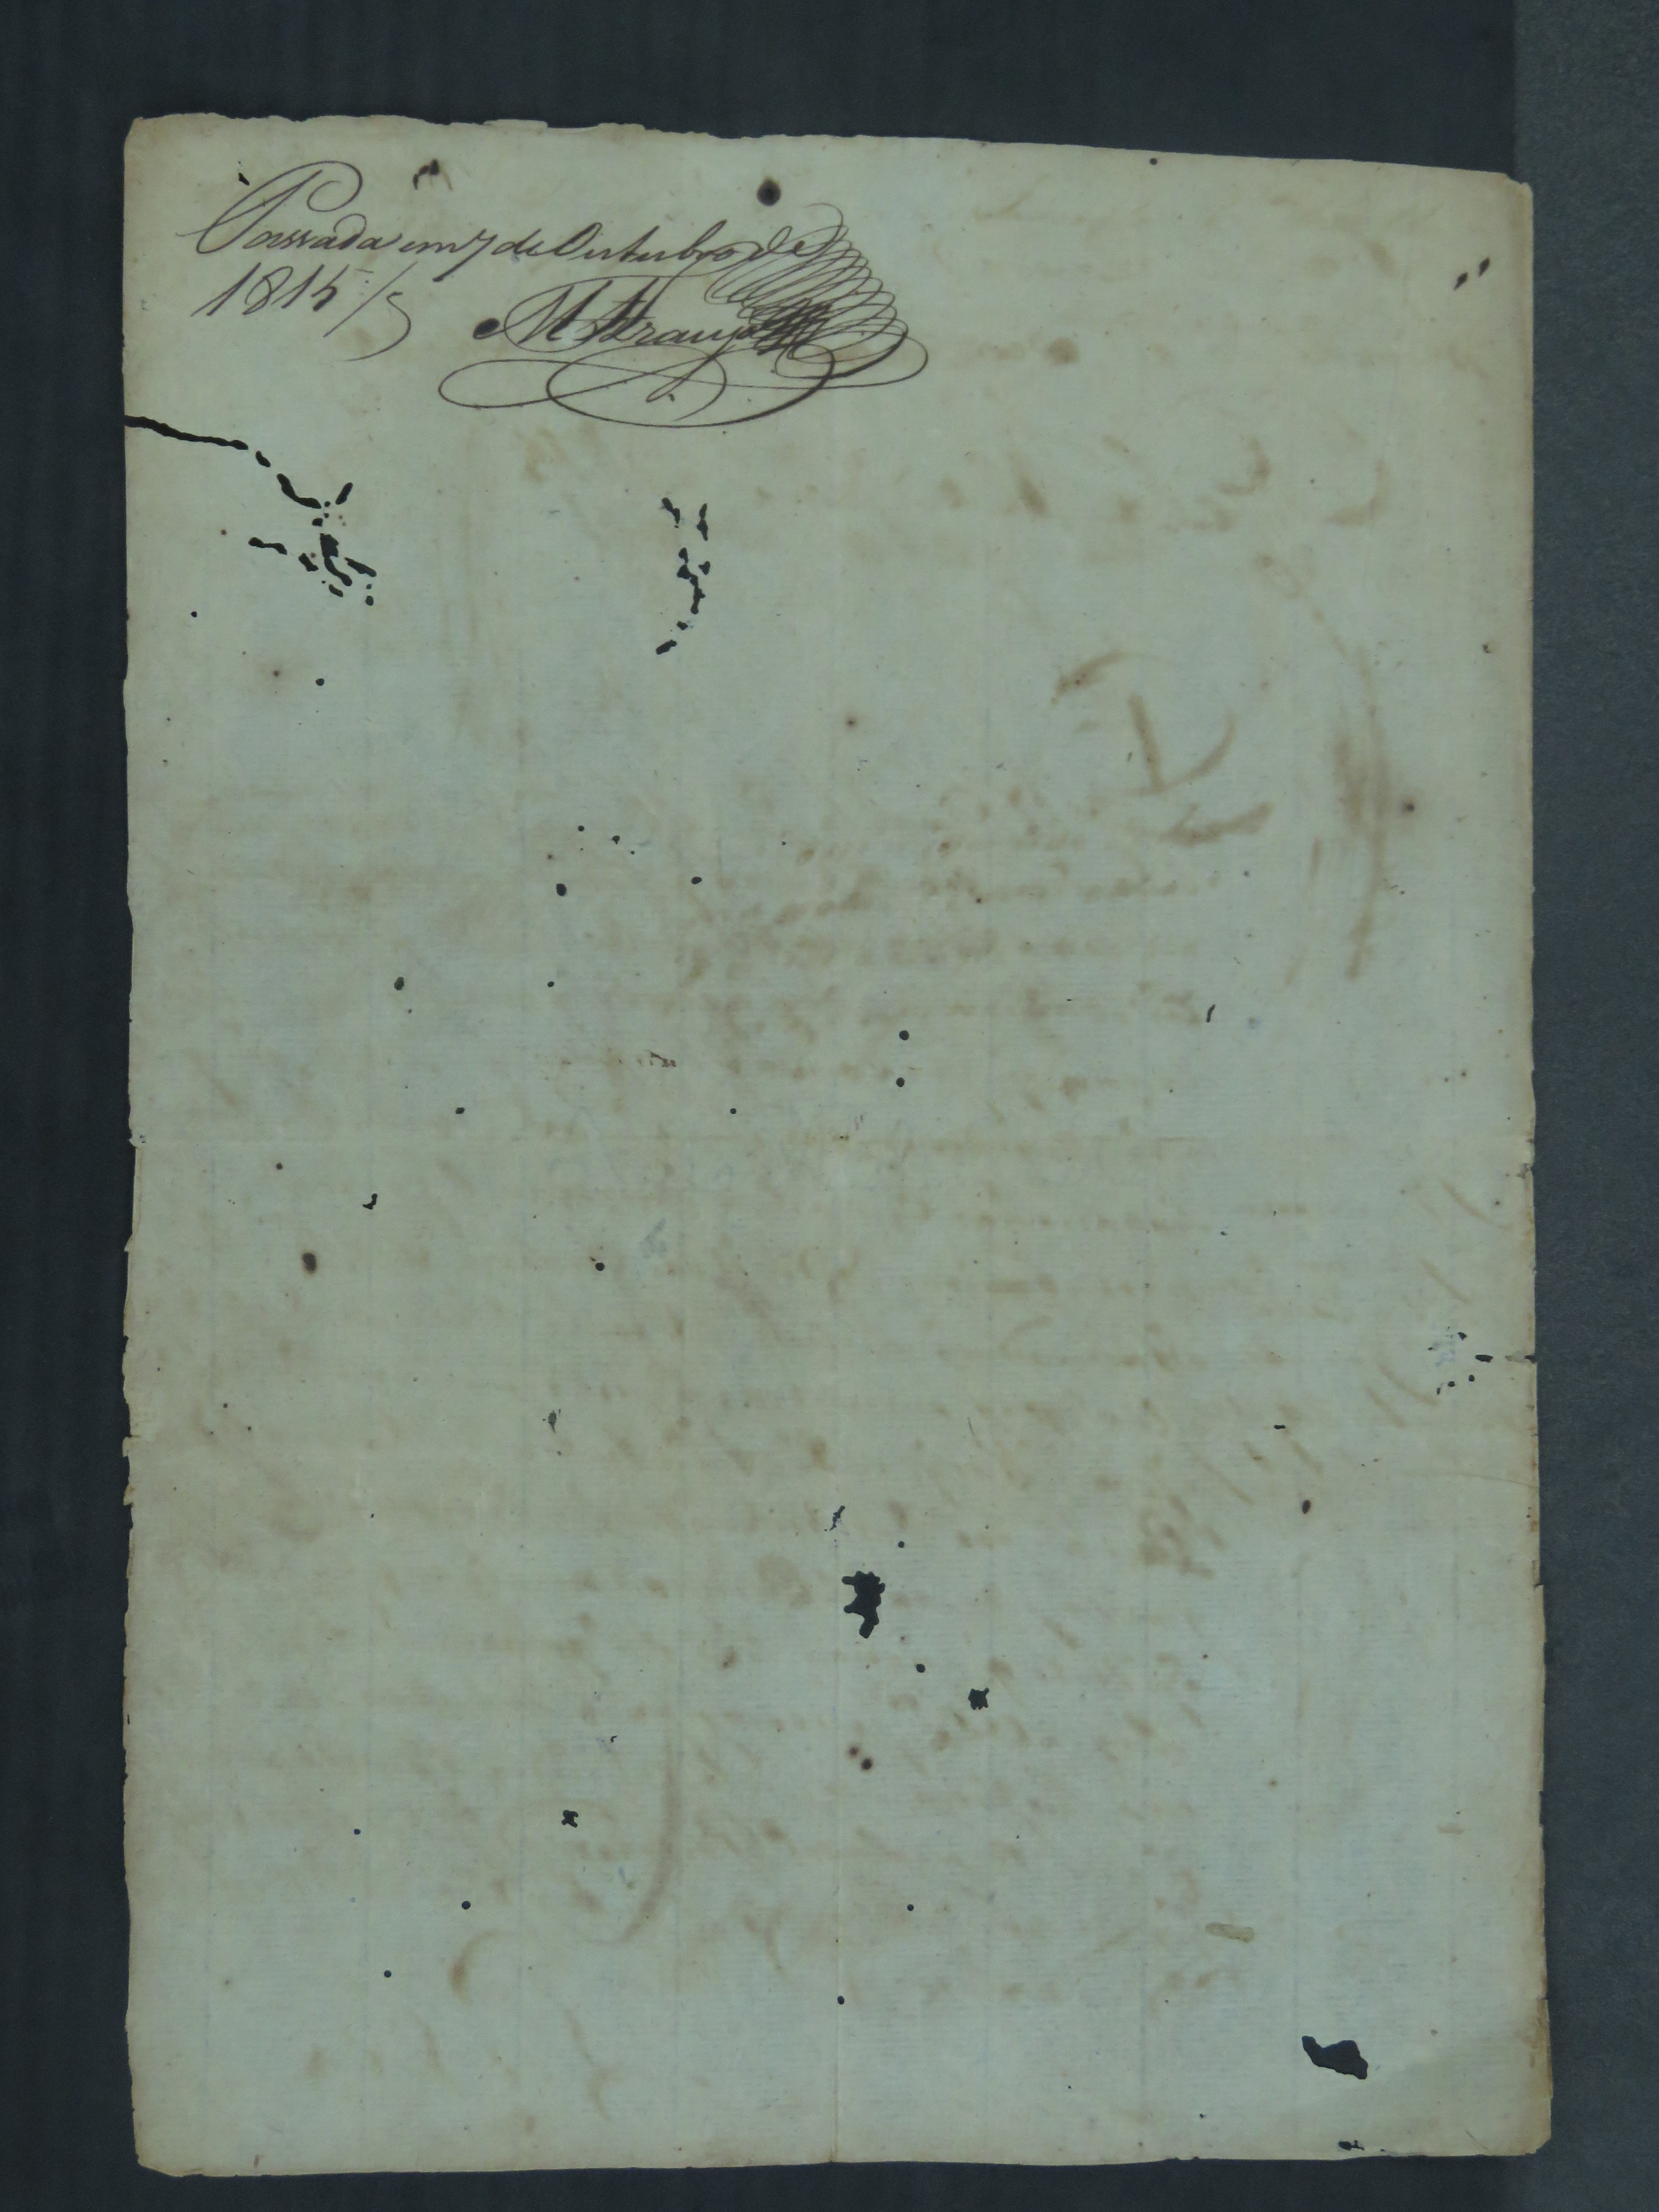 Passada em 7 de Outubro de
1815 //
M Araujo